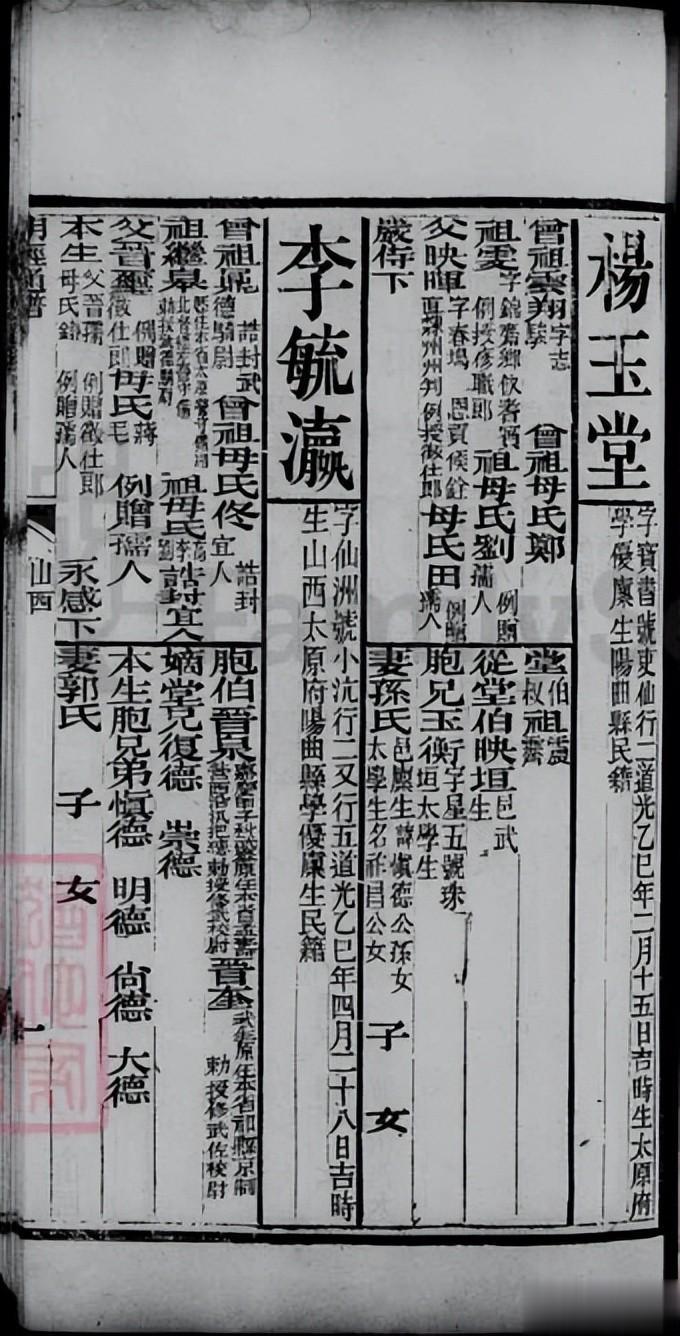 楊玉堂
字寶書號吏仙行二道光乙巳年二月十五日吉時生太原府
學優廩生陽曲縣民籍
曾祖雲翔字志 曾祖母氏鄭
祖雯字錦齋鄉飲耆賓 例授修職郎 祖母氏劉例贈孺人
父映暉字春塢 恩貢候銓 直隸州州判例授徵仕郎 母氏田例贈孺人
嚴侍下
堂伯叔祖震霽
從堂伯映垣邑武生
胞兄玉衡字星五號珠垣太學生
妻孫氏邑廩生諱慎德公孫女 太學生名祚昌公女 子 女
李毓瀛
字仙洲號小沆行二又行五道光乙巳年四月二十八日吉時
生山西太原府陽曲縣學優廩生民籍
曾祖鼎誥封武德騎尉 曾祖母氏佟誥封宜人
祖繼臯 祖母氏 誥封宜人
父晉 例贈徵仕郎 母氏蔣毛 例贈孺人
本生父晉孺 例贈徵仕郎 母氏鍾 例贈孺人 永感下
胞伯晉泉 晉奎
嫡堂兄復德 崇德
本生胞兄弟慎德 明德 尚德 大德
妻郭氏 子 女
明經通譜
山西
一